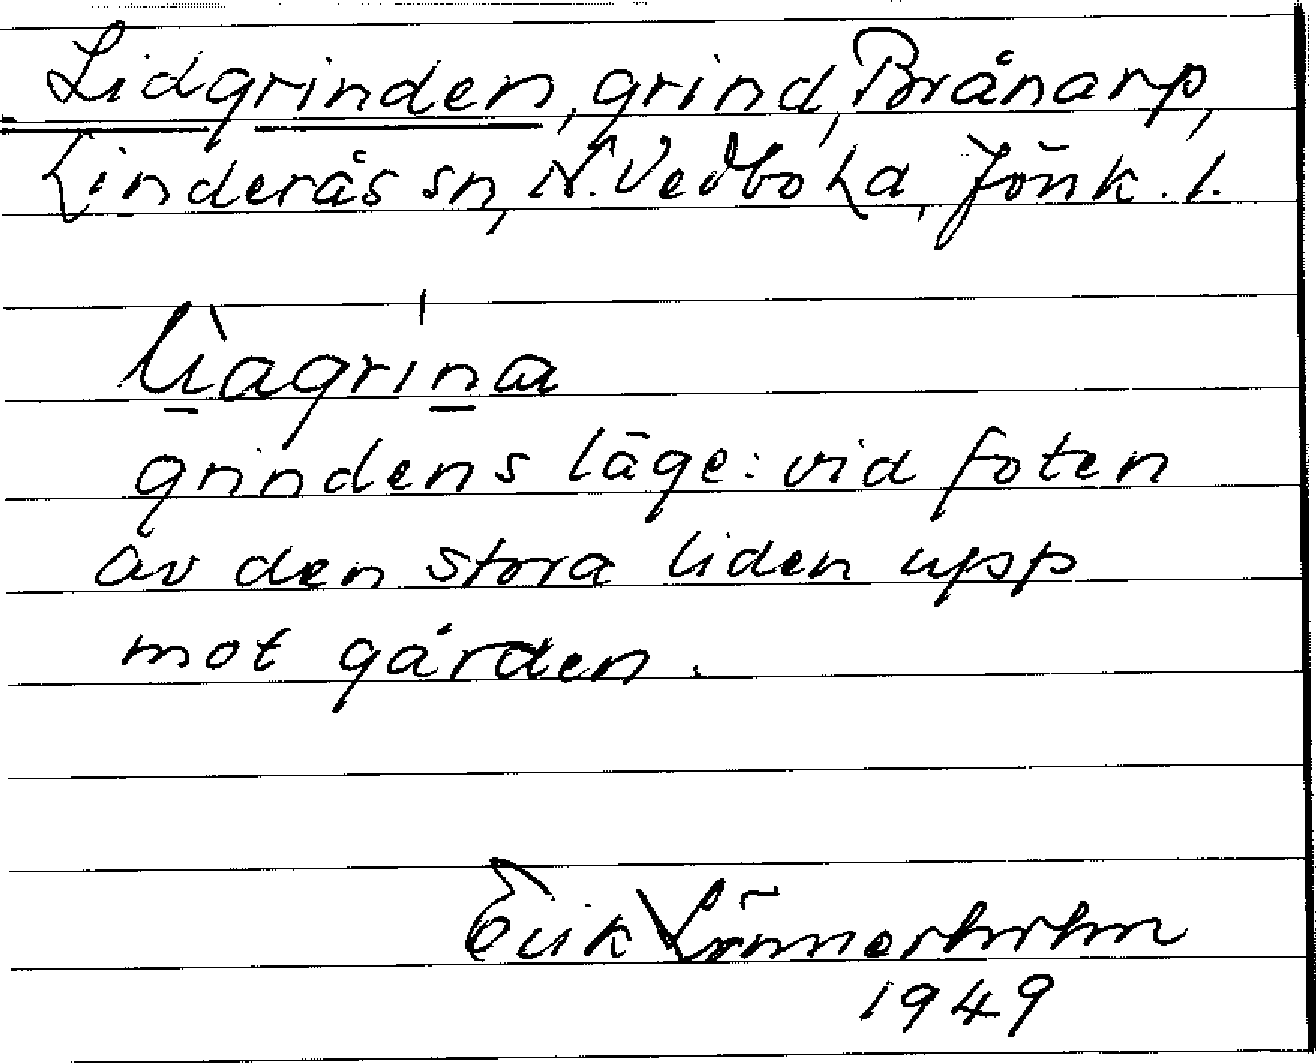 Lidgrinden, grind, Brånarp,
Linderås sn, N. Vedbo hd, Jönk. l.
lìagri'na
grindens läge: vid foten
av den stora liden upp
mot gården.
Erik Lönnerholm
1949